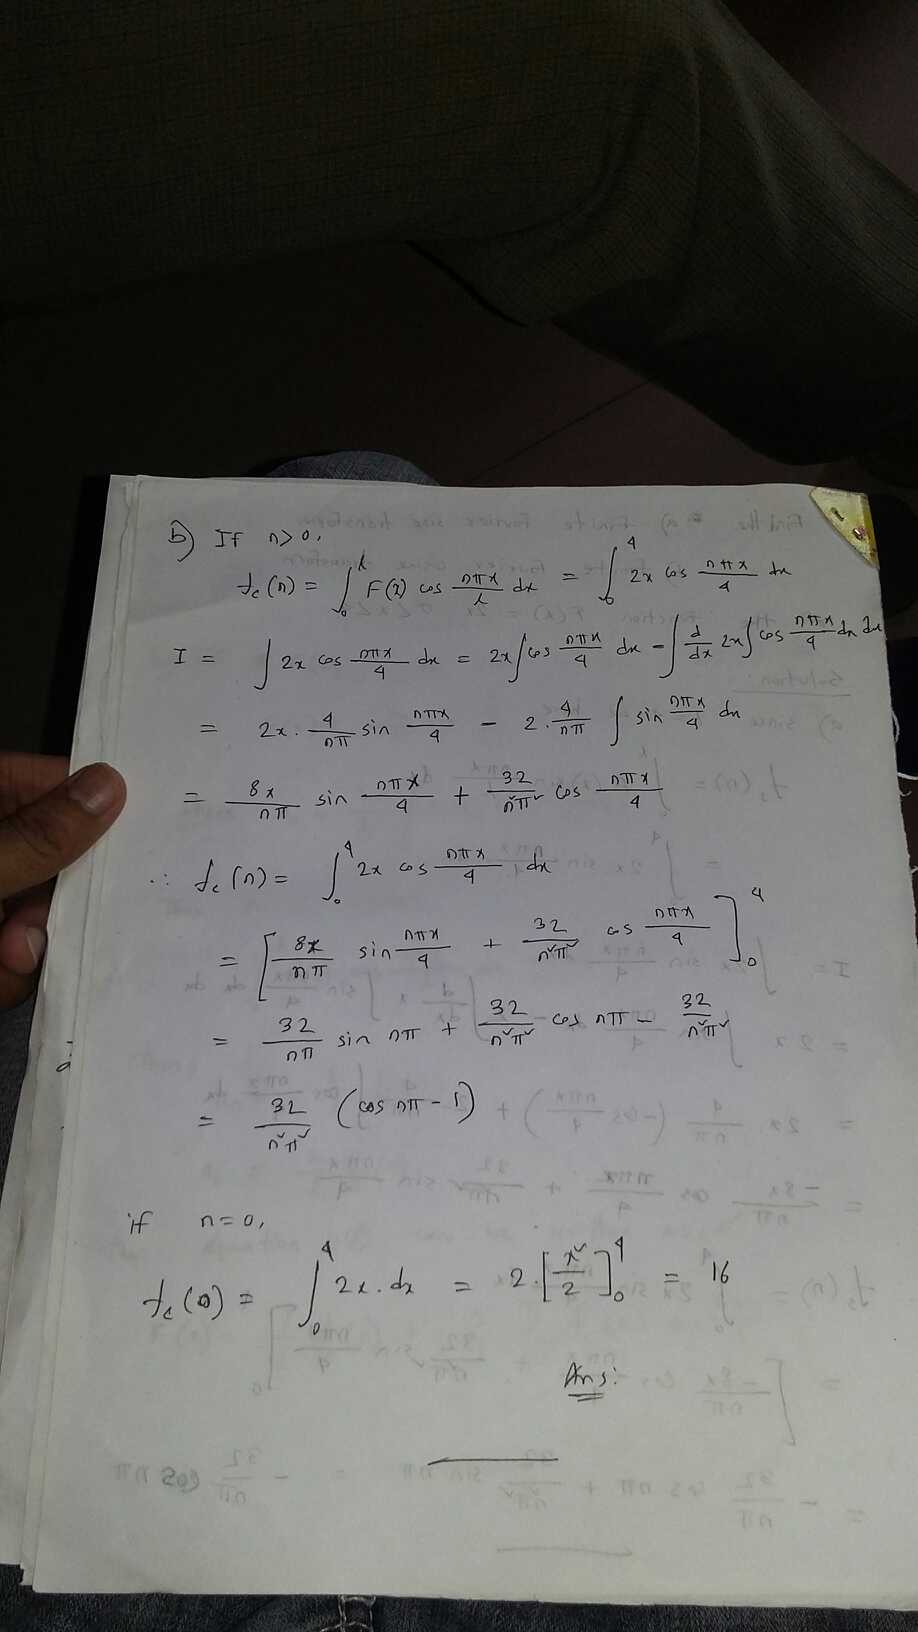 b) If n>0,
f_c(n) = ∫_0^l F(x) cos nπx/l dx = ∫_0^4 2x cos nπx/4 dx
I = ∫ 2x cos nπx/4 dx = 2x ∫ cos nπx/4 dx − ∫ d/dx 2x ∫ cos nπx/4 dx dx
= 2x · 4/nπ sin nπx/4 − 2 · 4/nπ ∫ sin nπx/4 dx
= 8x/nπ sin nπx/4 + 32/n²π² cos nπx/4
∴ f_c(n) = ∫_0^4 2x cos nπx/4 dx
= [8x/nπ sin nπx/4 + 32/n²π² cos nπx/4]_0^4
= 32/nπ sin nπ + 32/n²π² cos nπ − 32/n²π²
= 32/n²π² (cos nπ − 1)
if n=0,
f_c(0) = ∫_0^4 2x.dx = 2.[x²/2]_0^4 = 16
Ans: